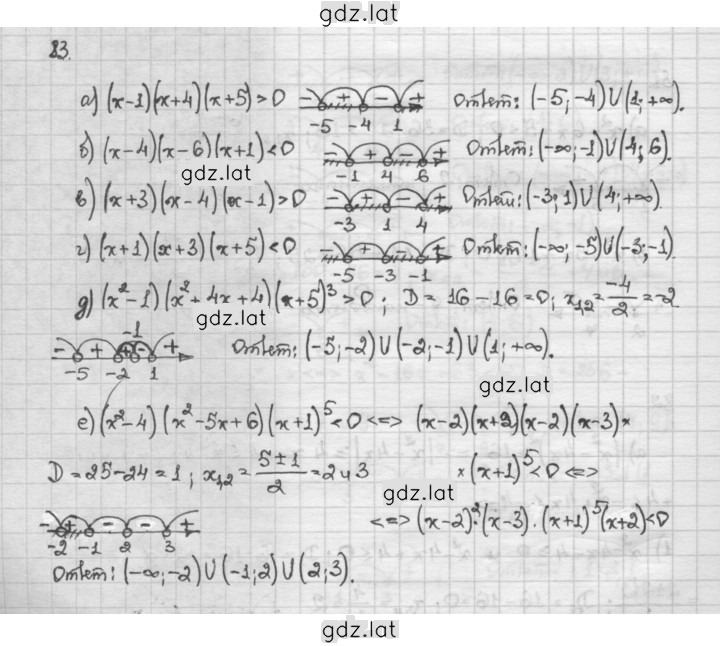 gdz.lat
83.
а) (x-1)(x+4)(x+5)>0 - + - + -5 -4 1 Ответ: (-5;-4)∪(1;+∞).
б) (x-4)(x-6)(x+1)<0 - + - + -1 4 6 Ответ: (-∞;-1)∪(4;6).
gdz.lat
в) (x+3)(x-4)(x-1)>0 - + - + -3 1 4 Ответ: (-3;1)∪(4;+∞)
г) (x+1)(x+3)(x+5)<0 - + - + -5 -3 -1 Ответ: (-∞;-5)∪(-3;-1).
gdz.lat
д) (x²-1)(x²+4x+4)(x+5)³>0; D=16-16=0; x₁,₂=-4/2=-2
- + + - + -5 -2 -1 1 Ответ: (-5;-2)∪(-2;-1)∪(1;+∞).
gdz.lat
е) (x²-4)(x²-5x+6)(x+1)⁵<0 <=> (x-2)(x+2)(x-2)(x-3)×
D=25-24=1; x₁,₂=(5±1)/2=2 и 3 ×(x+1)⁵<0 <=>
gdz.lat
- + - - + -2 -1 2 3 <=> (x-2)²·(x-3)·(x+1)⁵(x+2)<0
Ответ: (-∞;-2)∪(-1;2)∪(2;3).
gdz.lat